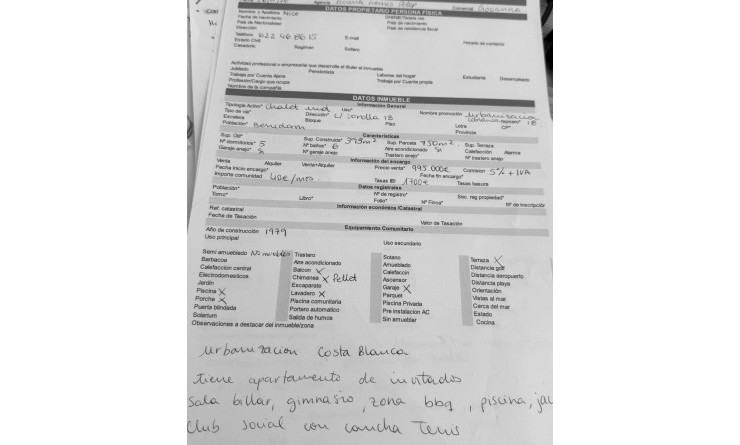 DATOS PROPIETARIO PERSONA FÍSICA
Nombre y Apellidos Nice
Fecha de nacimiento
País de Nacionalidad País de nacimiento
Dirección País de residencia fiscal
Teléfono 622 468615 E-mail Horario de contacto
Estado Civil
Casado/a: Régimen Soltero
Actividad profesional o empresarial que desarrolla el titular el inmueble
Jubilado Pensionista Labores del hogar Estudiante Desempleado
Trabaja por Cuenta Ajena Trabaja por Cuenta propia
Profesión/Cargo que ocupa
Nombre de la compañía
DATOS INMUEBLE
Información General
Tipología Activo* chalet ind Uso* Nombre promoción urbanización
Tipo de vía* Dirección* c/ corolla 18 Número* 18
Escalera Bloque Piso Letra CP*
Población* Benidorm Provincia
Características
Sup. Útil* Sup. Construida* 395m² Sup. Parcela 750m² Sup. Terraza
Nº dormitorios* 5 Nº baños* 6 Aire acondicionado Si Calefacción Alarma
Garaje anejo* Si Nº garaje anejo Trastero anejo* Nº trastero anejo
Información del encargo
Venta Alquiler Venta+Alquiler Precio venta* 995.000€ Comisión 5% + IVA
Fecha inicio encargo* Fecha fin encargo*
Importe comunidad 40€/mes. Tasas IBI 1700€ Tasas basura
Datos registrales
Población* Nº de registro* Sec. reg propiedad*
Tomo* Libro* Folio* Nº Finca* Nº de inscripción
Información económica /Catastral
Ref. catastral
Fecha de Tasación Valor de Tasación
Equipamiento Comunitario
Año de construcción 1979
Uso principal Uso secundario
Semi amueblado No muebles Trastero Sotano Terraza X
Barbacoa Aire acondicionado Amueblado Distancia golf
Calefaccion central Balcon X Calefaccin Distancia aeropuerto
Electrodomesticos Chimenea X Pellet Ascensor Distancia playa
Jardin Escaparate Garaje X Orientación
Piscina X Lavadero X Parquet Vistas al mar
Porche X Piscina comunitaria Piscina Privada Cerca del mar
Puerta blindada Portero automatico Pre instalacion AC Estado
Solarium Salida de humos Sin amueblar Cocina
Observaciones a destacar del inmueble/zona
urbanización Costa Blanca
tiene apartamento de invitados
sala billar, gimnasio, zona bbq, piscina, jac
Club social con cancha Tenis